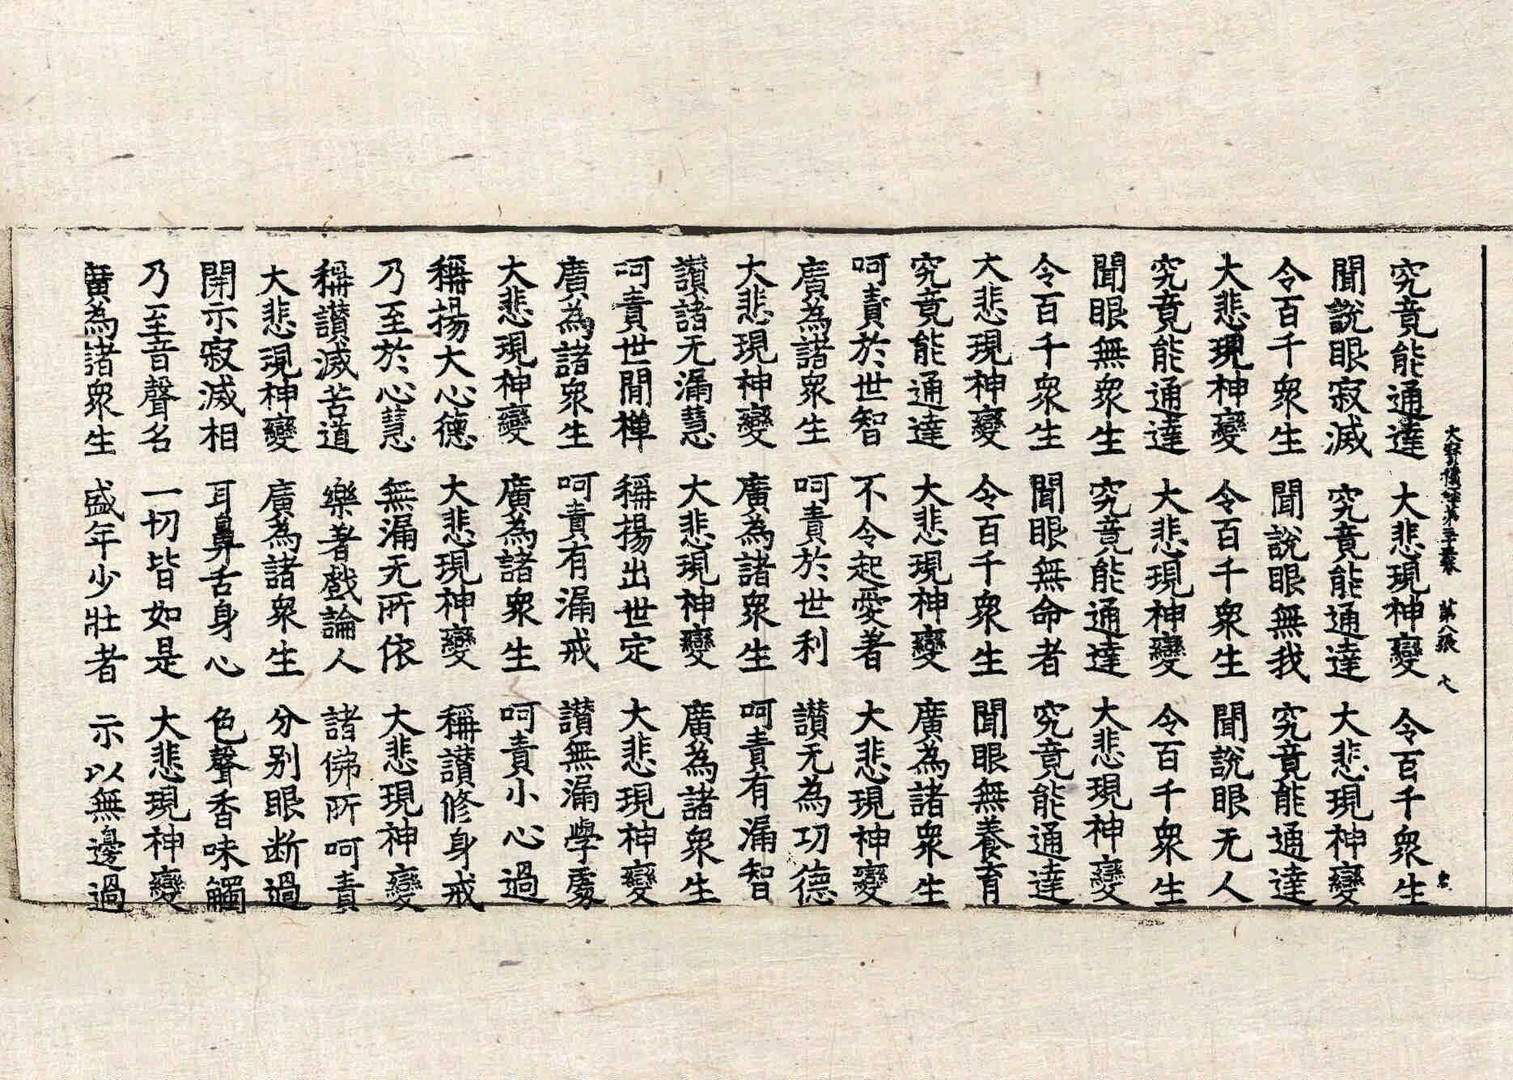 大寶積經第 第八張
究竟能通達 大悲現神變 令百千衆生
聞說眼寂滅 究竟能通達 大悲現神變
令百千衆生 聞說眼無我 究竟能通達
大悲現神變 令百千衆生 聞說眼无人
究竟能通達 大悲現神變 令百千衆生
聞眼無衆生 究竟能通達 大悲現神變
令百千衆生 聞眼無命者 究竟能通達
大悲現神變 令百千衆生 聞眼無養育
究竟能通達 大悲現神變 廣為諸衆生
呵責於世智 不令起愛著 大悲現神變
廣為諸衆生 呵責於世利 讃无為功德
大悲現神變 廣為諸衆生 呵責有漏智
讃諸无漏慧 大悲現神變 廣為諸衆生
呵責世間禅 稱揚出世定 大悲現神變
廣為諸衆生 呵責有漏戒 讃無漏學處
大悲現神變 廣為諸衆生 呵責小心過
稱揚大心德 大悲現神變 稱讃修身戒
乃至於心慧 無漏无所依 大悲現神變
稱讃滅苦道 樂著戲論人 諸佛所呵責
大悲現神變 廣為諸衆生 分别眼断過
開示寂滅相 耳鼻舌身心 色聲香味觸
乃至音聲名 一切皆如是 大悲現神變
廣為諸衆生 盛年少壯者 示以無邊過